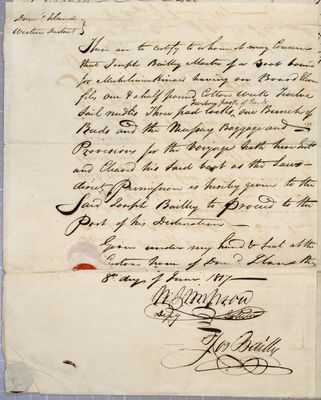 Drum.d Island
Western District
These are to certify to whom it may Concern
that Joseph Bailly Master of a Boat bound
for Michilimackinac having on Board Eleven
fifs one & half pound Cotton Wick Twelve
Sail nedles Three pad locks, one Bunch of
twenty packs of Cards
Beads and the Baggage and
Provisions for the Voyage Hath here
and Cleard his said boat as the Law
direct Permission is hereby given to the
Said Joseph Bailly to Proceed to the
Port of his Destination
Given under my hand & Seal at the
Custom House of Drum.d Island this
8th day of June 1817
Simpson
Depy
Jos Bailly